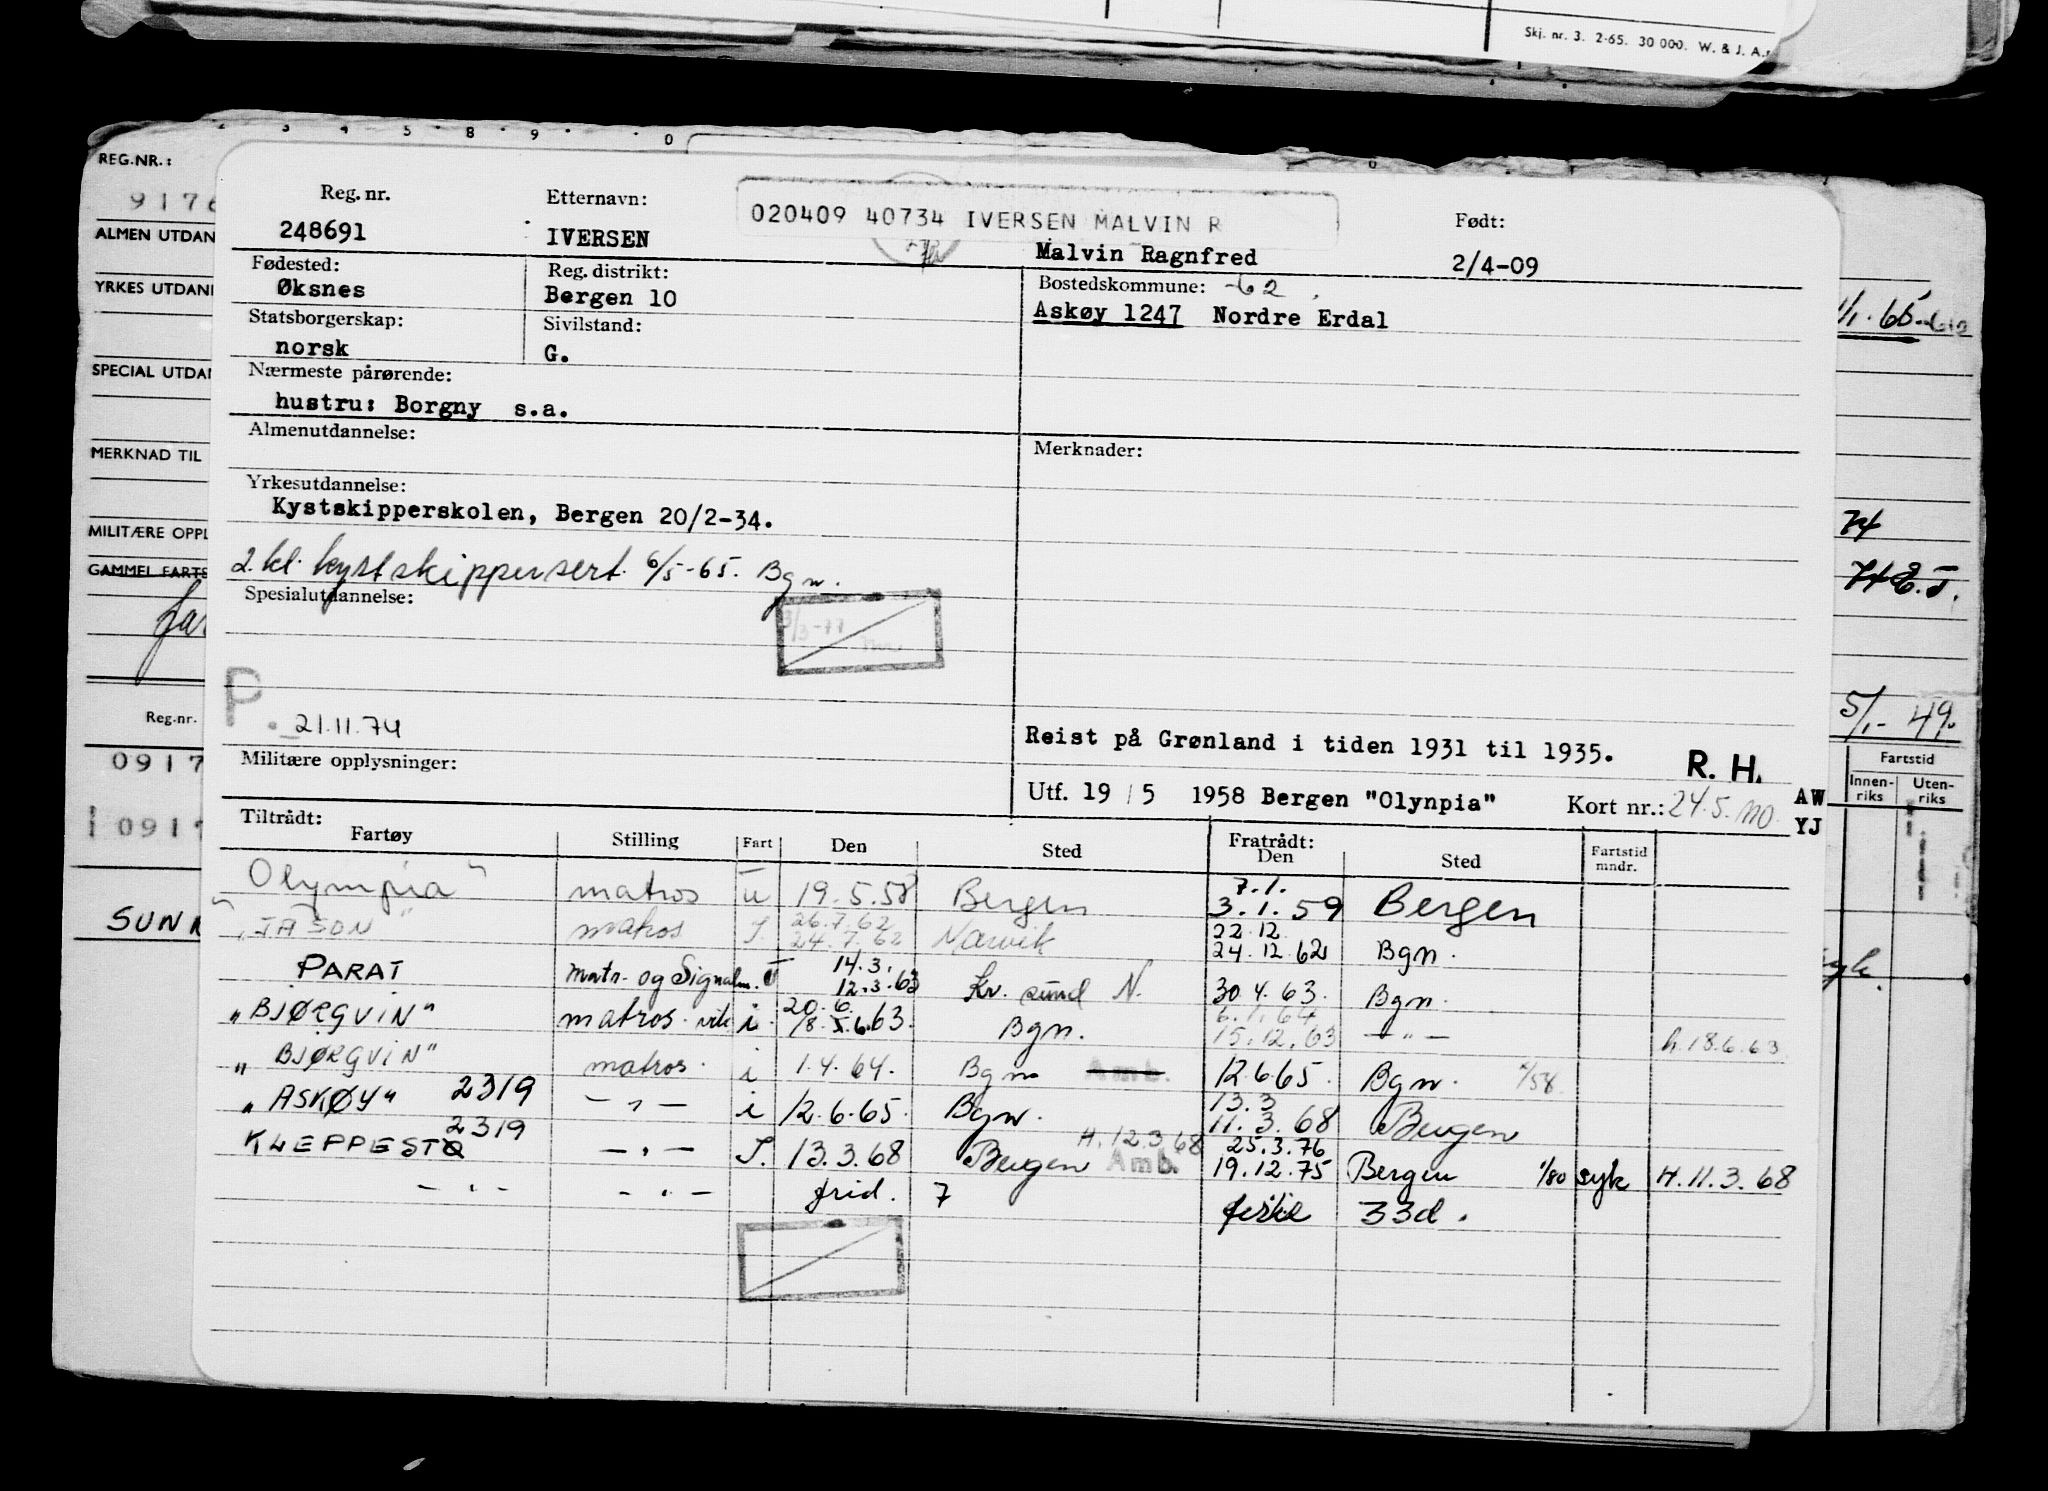 Skj. nr. 3. 2-65. 30 000. W. & J. A.
REG.NR.:
9176
ALMEN UTDAN
YRKES UTDANN
SPECIAL UTDAN
MERKNAD TIL
MILITÆRE OPPL
GAMMEL FARTS
Reg.nr.
0917
0917
Reg. nr.
248691
Etternavn:
IVERSEN
020409 40734 IVERSEN MALVIN R
Malvin Ragnfred
Født:
2/4-09
Fødested:
Øksnes
Reg. distrikt:
Bergen 10
Bostedskommune: -62
Askøy 1247 Nordre Erdal
Statsborgerskap:
norsk
Sivilstand:
G.
Nærmeste pårørende:
hustru: Borgny s.a.
Almenutdannelse:
Merknader:
Yrkesutdannelse:
Kystskipperskolen, Bergen 20/2-34.
2. kl. kystskippersert. 6/5-65. Bgn.
Spesialutdannelse:
3/3-77
P.
21.11.74
Militære opplysninger:
Reist på Grønland i tiden 1931 til 1935.
R. H.
Utf. 19/5 1958 Bergen "Olynpia" Kort nr.: 24.5.
AW
YJ
74
5/1-49.
Fartstid
Innen-riks Uten-riks
Tiltrådt:
Fartøy Stilling Fart Den Sted Fratrådt: Den Sted Fartstid mndr.
Olympia" matros u 19.5.58 Bergen 7.1. 3.1.59 Bergen
"JASON" matros I. 26.7.62 24.7.62 Narvik 22.12 24.12.62 Bgn.
PARAT matr. og Signalm. 14.3. 12.3.63 Kr. sund N. 30.4.63. Bgn.
"BJØRGVIN" matros. vik i. 20.6. 18.5.6.63. Bgn. 6.1.64 15.12.63 —"— h.18.6.63
"BJØRGVIN" matros. i 1.4.64. Bgn Amb. 12.6.65. Bgn. 1/58
"ASKØY" 2319 —"— i 12.6.65. Bgn. 13.3 11.3.68 Bergen
KLEPPESTØ 2319 —"— I. 13.3.68 Bergen Amb. H.12.3.68 25.3.76 19.12.75 Bergen 1/80 syk H.11.3.68
—"— —"— frid. 7 ferie 33d.